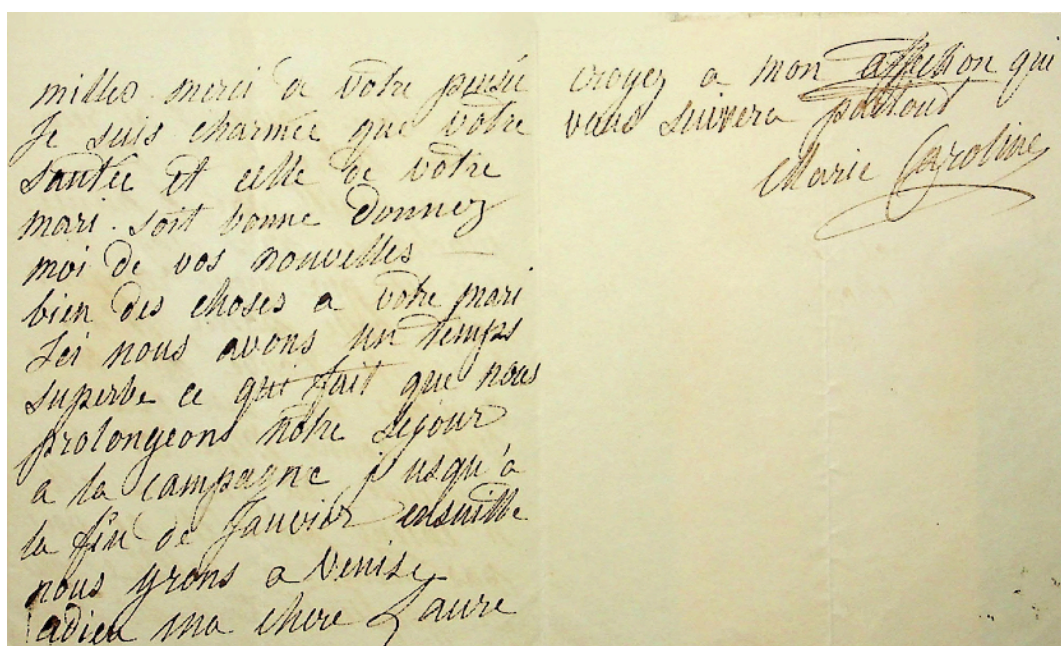 milles merci de votre pensée
Je suis charmée que votre
santée et celle de votre
mari soit bonne donnez
moi de vos nouvelles
bien des choses a votre mari
Ici nous avons un temps
superbe ce qui fait que nous
prolongeons notre séjour
a la campagne jusqu'a
la fin de Janvier ensuitte
nous yrons a Venise
adieu ma chere Laure
croyez a mon affection qui
vous suivera partout
Marie Caroline